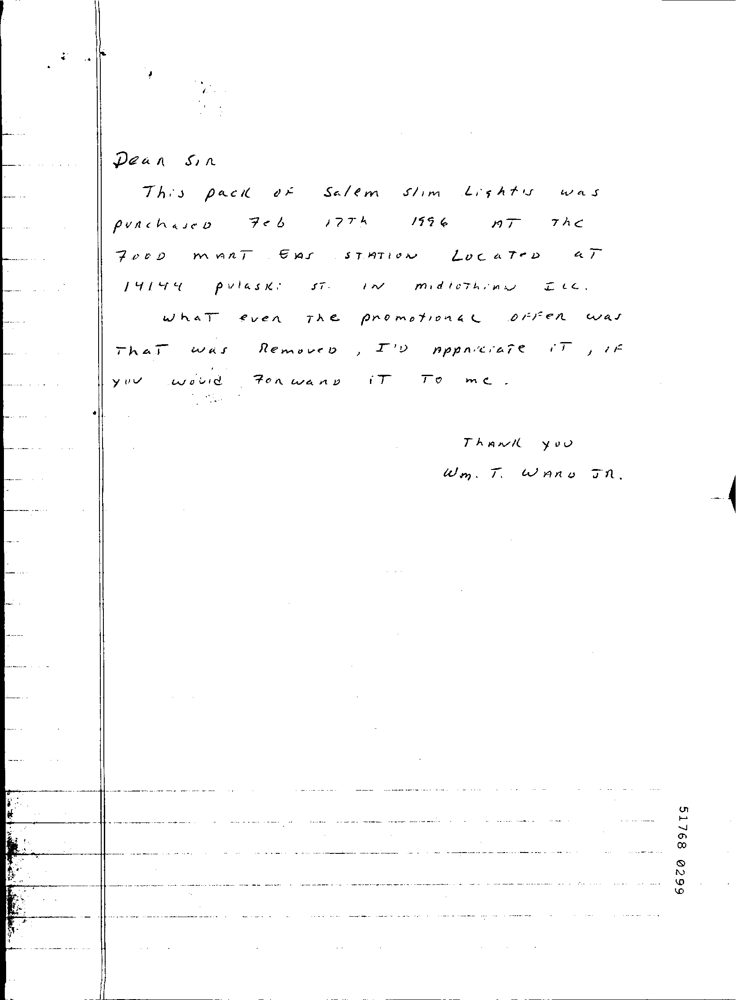 Dear Sir
This pack of Salem Slim Light's was
purchased Feb 17Th 1996 AT The
Food mart Gas STATION Located aT
14144 pulaski ST. IN midlothian ILL.
WhaT ever The promotional offer was
ThaT was Removed, I'D appriciaTe iT, if
you would Forward iT To me.
Thank you
Wm. T. Ward JR.
51768 0299